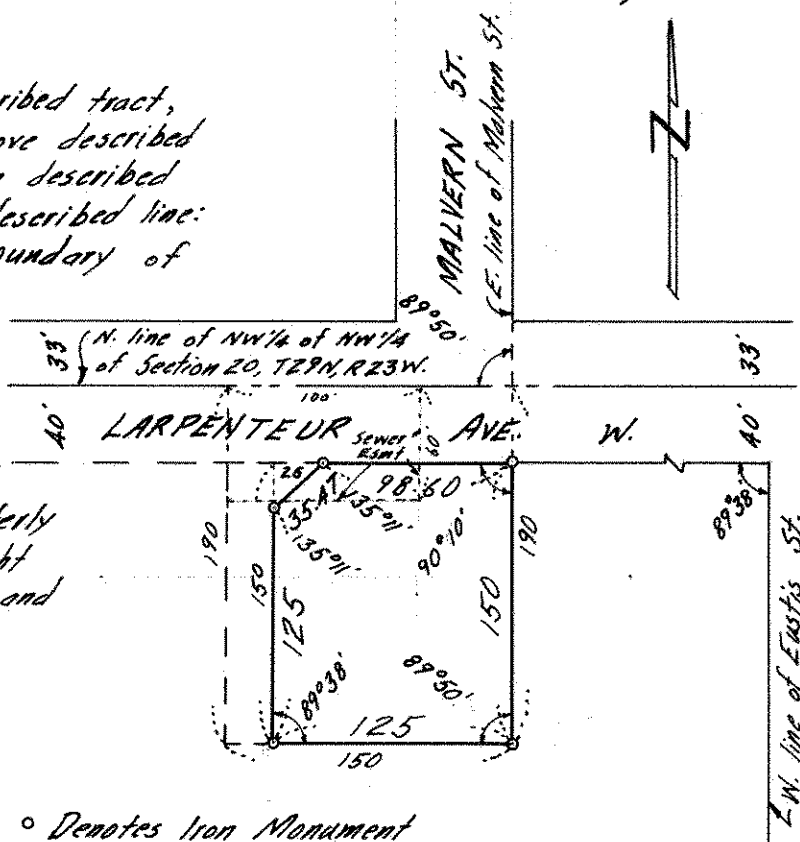 ribed tract,
ove described
described
described line:
undary of
MALVERN ST.
E. line of Malvern St.
Z
89°50'
33'
N. line of NW¼ of NW¼
of Section 20, T29N, R23W.
33'
100'
40'
LARPENTEUR AVE. W.
Sewer
Esmt
60
40'
26
98.60
35.47
135°11'
135°11'
90°10'
89°38'
190
150
125
150
190
erly
ht
and
89°38'
89°50'
125
150
W. line of Eustis St.
° Denotes Iron Monument